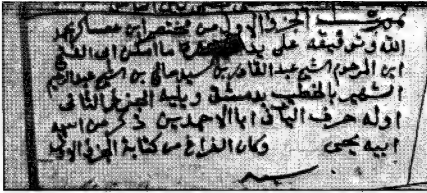 تمت الجزء الاول من مختصر ابن عساكر بحمد
الله وتوفيقه على يد
ابن المرحوم الشيخ عبد القادر بن سيد صالح بن الشيخ عبد الرحيم
الشهير بالخطيب بدمشق ويليه الجزء الثانى
اوله حرف الياء فى اباء الاحمدين ذكر من اسم
ابيه يحيى وكان الفراغ من كتابة الجزء الاول